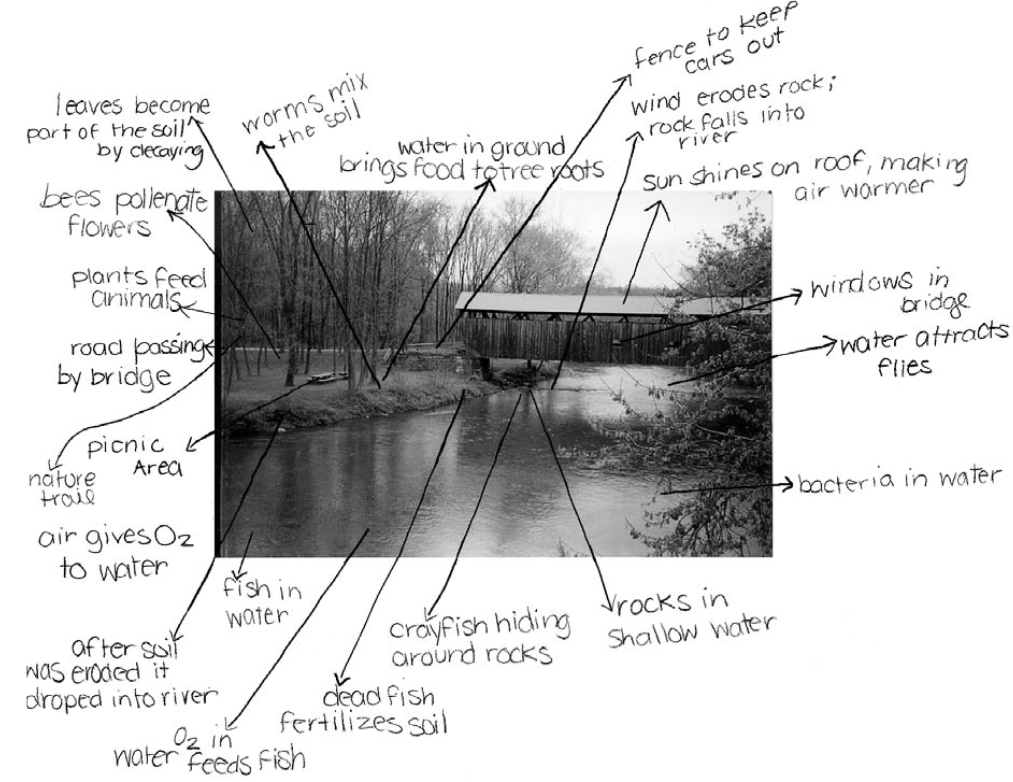 fence to keep
cars out
wind erodes rock;
rock falls into
river
leaves become
part of the soil
by decaying
worms mix
the soil
water in ground
brings food to tree roots
sun shines on roof, making
air warmer
bees pollenate
flowers
plants feed
animals
windows in
bridge
road passing
by bridge
water attracts
flies
picnic
Area
nature
trail
bacteria in water
air gives O₂
to water
fish in
water
rocks in
shallow water
crayfish hiding
around rocks
after soil
was eroded it
droped into river
dead fish
fertilizes soil
O₂ in
water feeds fish